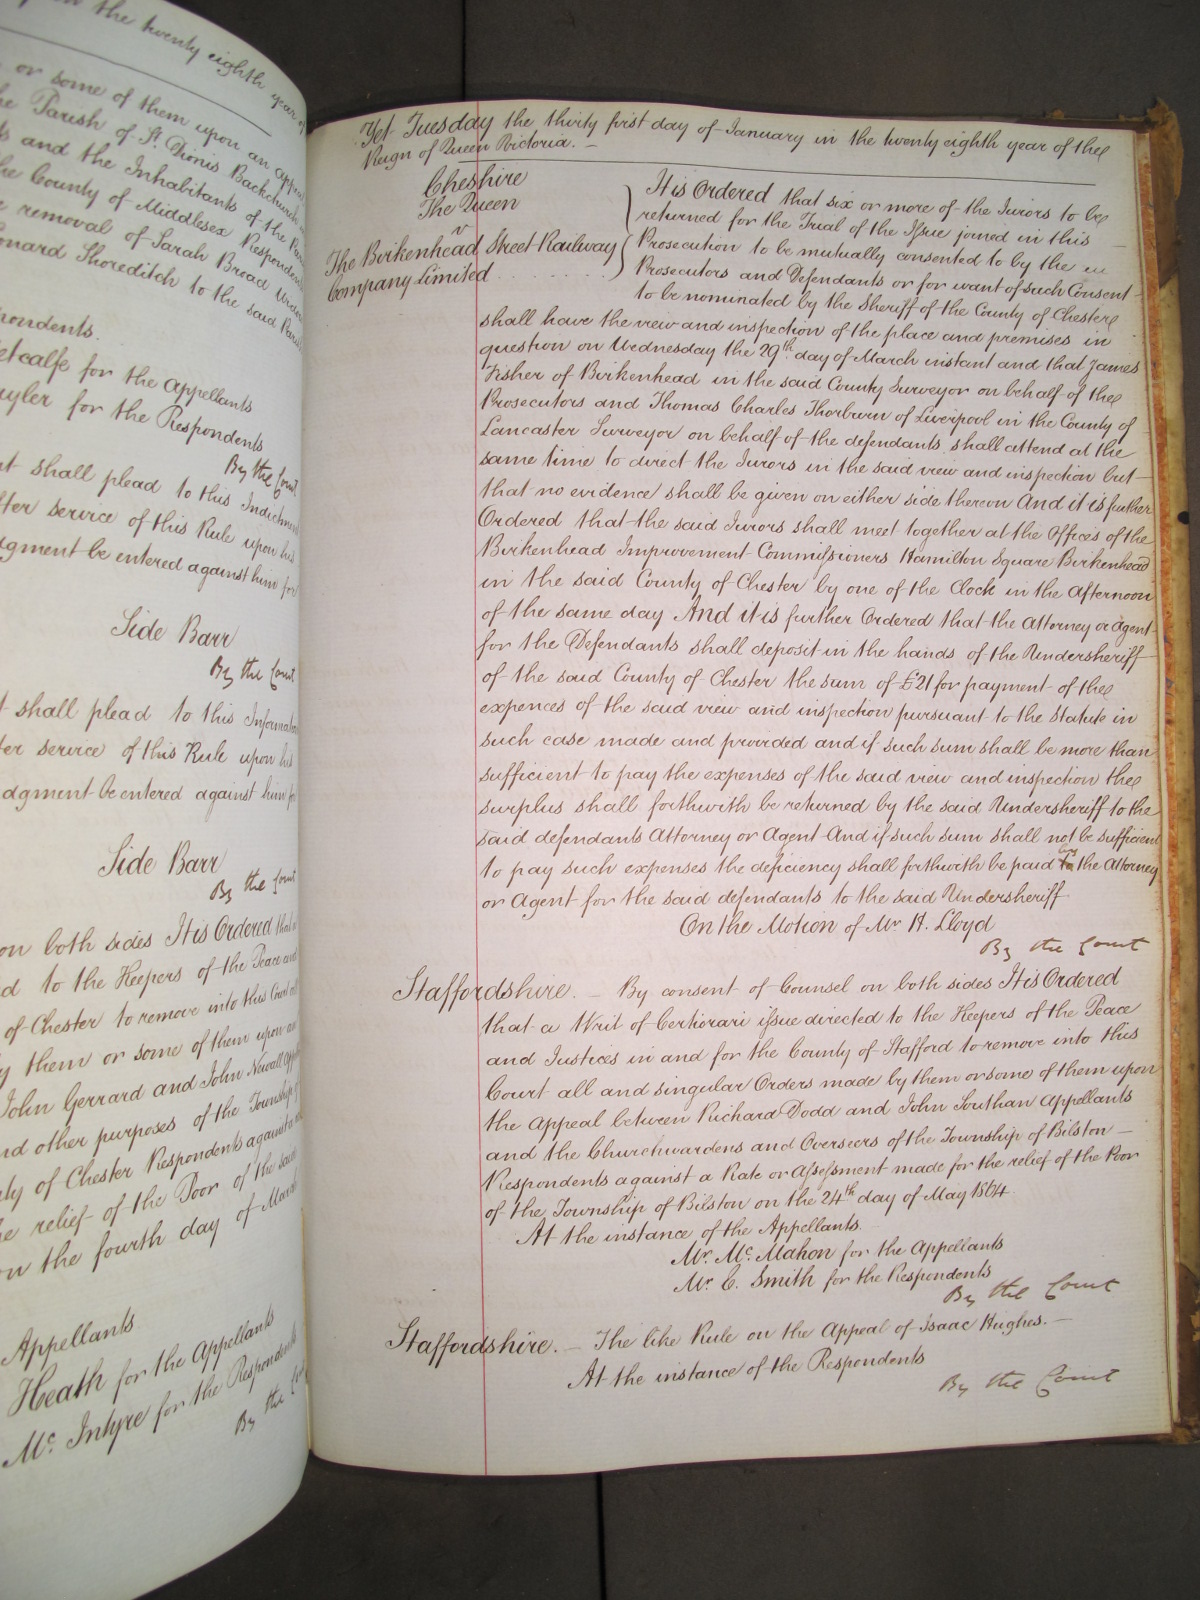 the twenty eighth year of
or some of them upon an appeal
the Parish of St. Dionis Backchurch
and the Inhabitants of the
the County of Middlesex Respondents
removal of Sarah Broad
Leonard Shoreditch to the said
Respondents.
Metcalfe for the Appellants
for the Respondents
By the Court
shall plead to this Indictment
after service of this Rule upon his
Judgment be entered against him for
Side Barr
By the Court
shall plead to this Information
after service of this Rule upon his
Judgment be entered against him for
Side Barr
By the Court
on both sides It is Ordered that a
to the Keepers of the Peace and
of Chester to remove into this Court all
by them or some of them upon an
John Gerrard and John Newall
and other purposes of the Township of
of Chester Respondents against a
relief of the Poor of the said
on the fourth day of
Appellants
Heath for the Appellants
Mc. Intyre for the Respondents
By the Court
Yet Tuesday the thirty first day of January in the twenty eighth year of the
Reign of Queen Victoria. —
Cheshire
The Queen
v
The Birkenhead Street Railway
Company Limited
It is Ordered that six or more of the Jurors to be
returned for the Trial of the Issue joined in this
Prosecution to be mutually consented to by the
Prosecutors and Defendants or for want of such Consent
to be nominated by the Sheriff of the County of Chester
shall have the view and inspection of the place and premises in
question on Wednesday the 29th day of March instant and that James
Fisher of Birkenhead in the said County Surveyor on behalf of the
Prosecutors and Thomas Charles Thorburn of Liverpool in the County of
Lancaster Surveyor on behalf of the defendants shall attend at the
same time to direct the Jurors in the said view and inspection but
that no evidence shall be given on either side thereon And it is further
Ordered that the said Jurors shall meet together at the Offices of the
Birkenhead Improvement Commissioners Hamilton Square Birkenhead
in the said County of Chester by one of the Clock in the Afternoon
of the same day And it is further Ordered that the Attorney or Agent
for the Defendants shall deposit in the hands of the Undersheriff
of the said County of Chester the sum of £21 for payment of the
expences of the said view and inspection pursuant to the Statute in
such case made and provided and if such sum shall be more than
sufficient to pay the expenses of the said view and inspection the
surplus shall forthwith be returned by the said Undersheriff to the
said defendants Attorney or Agent And if such sum shall not be sufficient
to pay such expenses the deficiency shall forthwith be paid by the Attorney
or Agent for the said defendants to the said Undersheriff
On the Motion of Mr H. Lloyd
By the Court
Staffordshire. — By consent of Counsel on both sides It is Ordered
that a Writ of Certiorari issue directed to the Keepers of the Peace
and Justices in and for the County of Stafford to remove into this
Court all and singular Orders made by them or some of them upon
the Appeal between Richard Dodd and John Southan Appellants
and the Churchwardens and Overseers of the Township of Bilston —
Respondents against a Rate or Assessment made for the relief of the Poor
of the Township of Bilston on the 24th day of May 1864.
At the instance of the Appellants.
Mr. Mc. Mahon for the Appellants
Mr. C. Smith for the Respondents
By the Court
Staffordshire. — The like Rule on the Appeal of Isaac Hughes. —
At the instance of the Respondents
By the Court